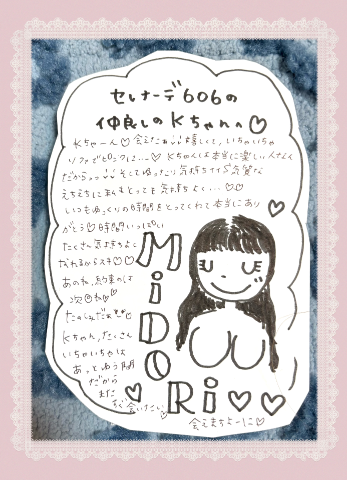 セレナーデ606の
仲良しのKちゃんへ♡
Kちゃーん♡会えたね 嬉しくて、いちゃいちゃ
ソファでピンクに…♡ Kちゃんは本当に楽しい人なん
だからっっ そして
えちえちに とっても気持ちよく…♡♡
いつもゆっくりの時間をとってくれて本当にあり
がとう♡時間いっぱい
たくさん気持ちよく
なれるからスキ♡♡
あのね、約束のは
次回ね♡
たのしみだね
Kちゃん、たくさん
いちゃいちゃは
あっとゆう間
だから
また
すぐ会いたい♡
会えますよーに♡
MiDORi♡♡